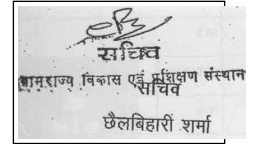 सचिव
ग्रामराज्य विकास एवं प्रशिक्षण संस्थान
सचिव
छैलबिहारी शर्मा